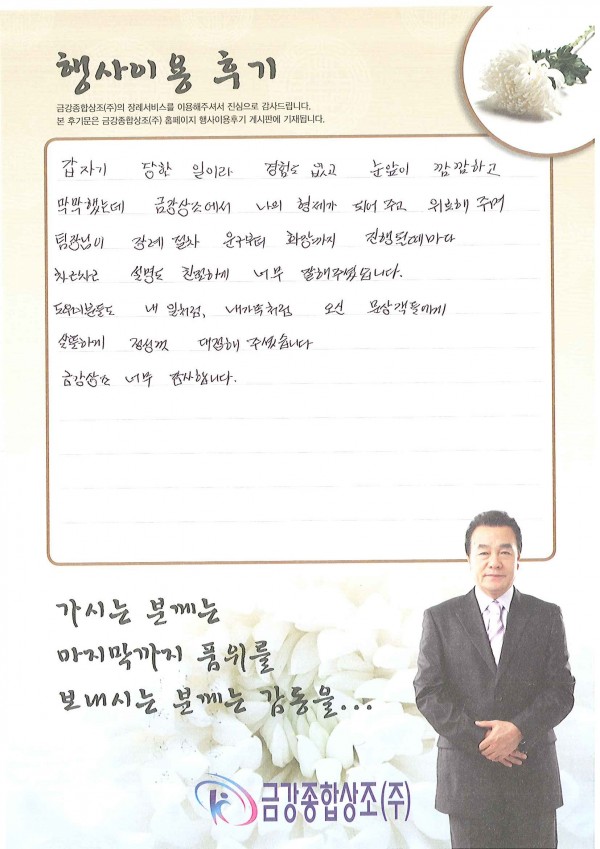 행사이용 후기
금강종합상조(주)의 장례서비스를 이용해주셔서 진심으로 감사드립니다.
본 후기문은 금강종합상조(주) 홈페이지 행사이용후기 게시판에 기재됩니다.
갑자기 당한 일이라 경험도 없고 눈앞이 깜깜하고
막막했는데 금강상조에서 나의 형제가 되어 주고 위로해 주며
팀장님이 장례 절차 운구부터 화장까지 진행될때마다
차근차근 설명도 친절하게 너무 잘해주셨습니다.
도우미분들도 내 일처럼, 내가족처럼 오신 문상객들에게
살뜰하게 정성껏 대접해 주셨습니다
금강상조 너무 감사합니다.
가시는 분께는
마지막까지 품위를
보내시는 분께는 감동을...
금강종합상조(주)